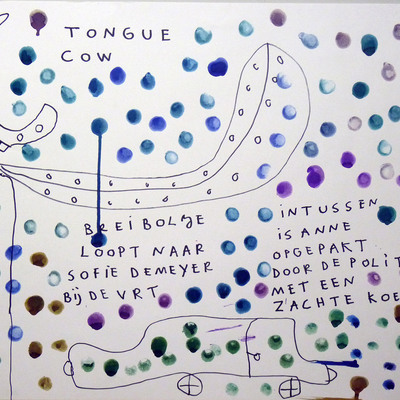 TONGUE
COW
BREIBOLTJE
LOOPT NAAR
SOFIE DEMEYER
BIJ DE VRT
INTUSSEN
IS ANNE
OPGEPAKT
DOOR DE POLIT
MET EEN
Z'ACHTE KOE